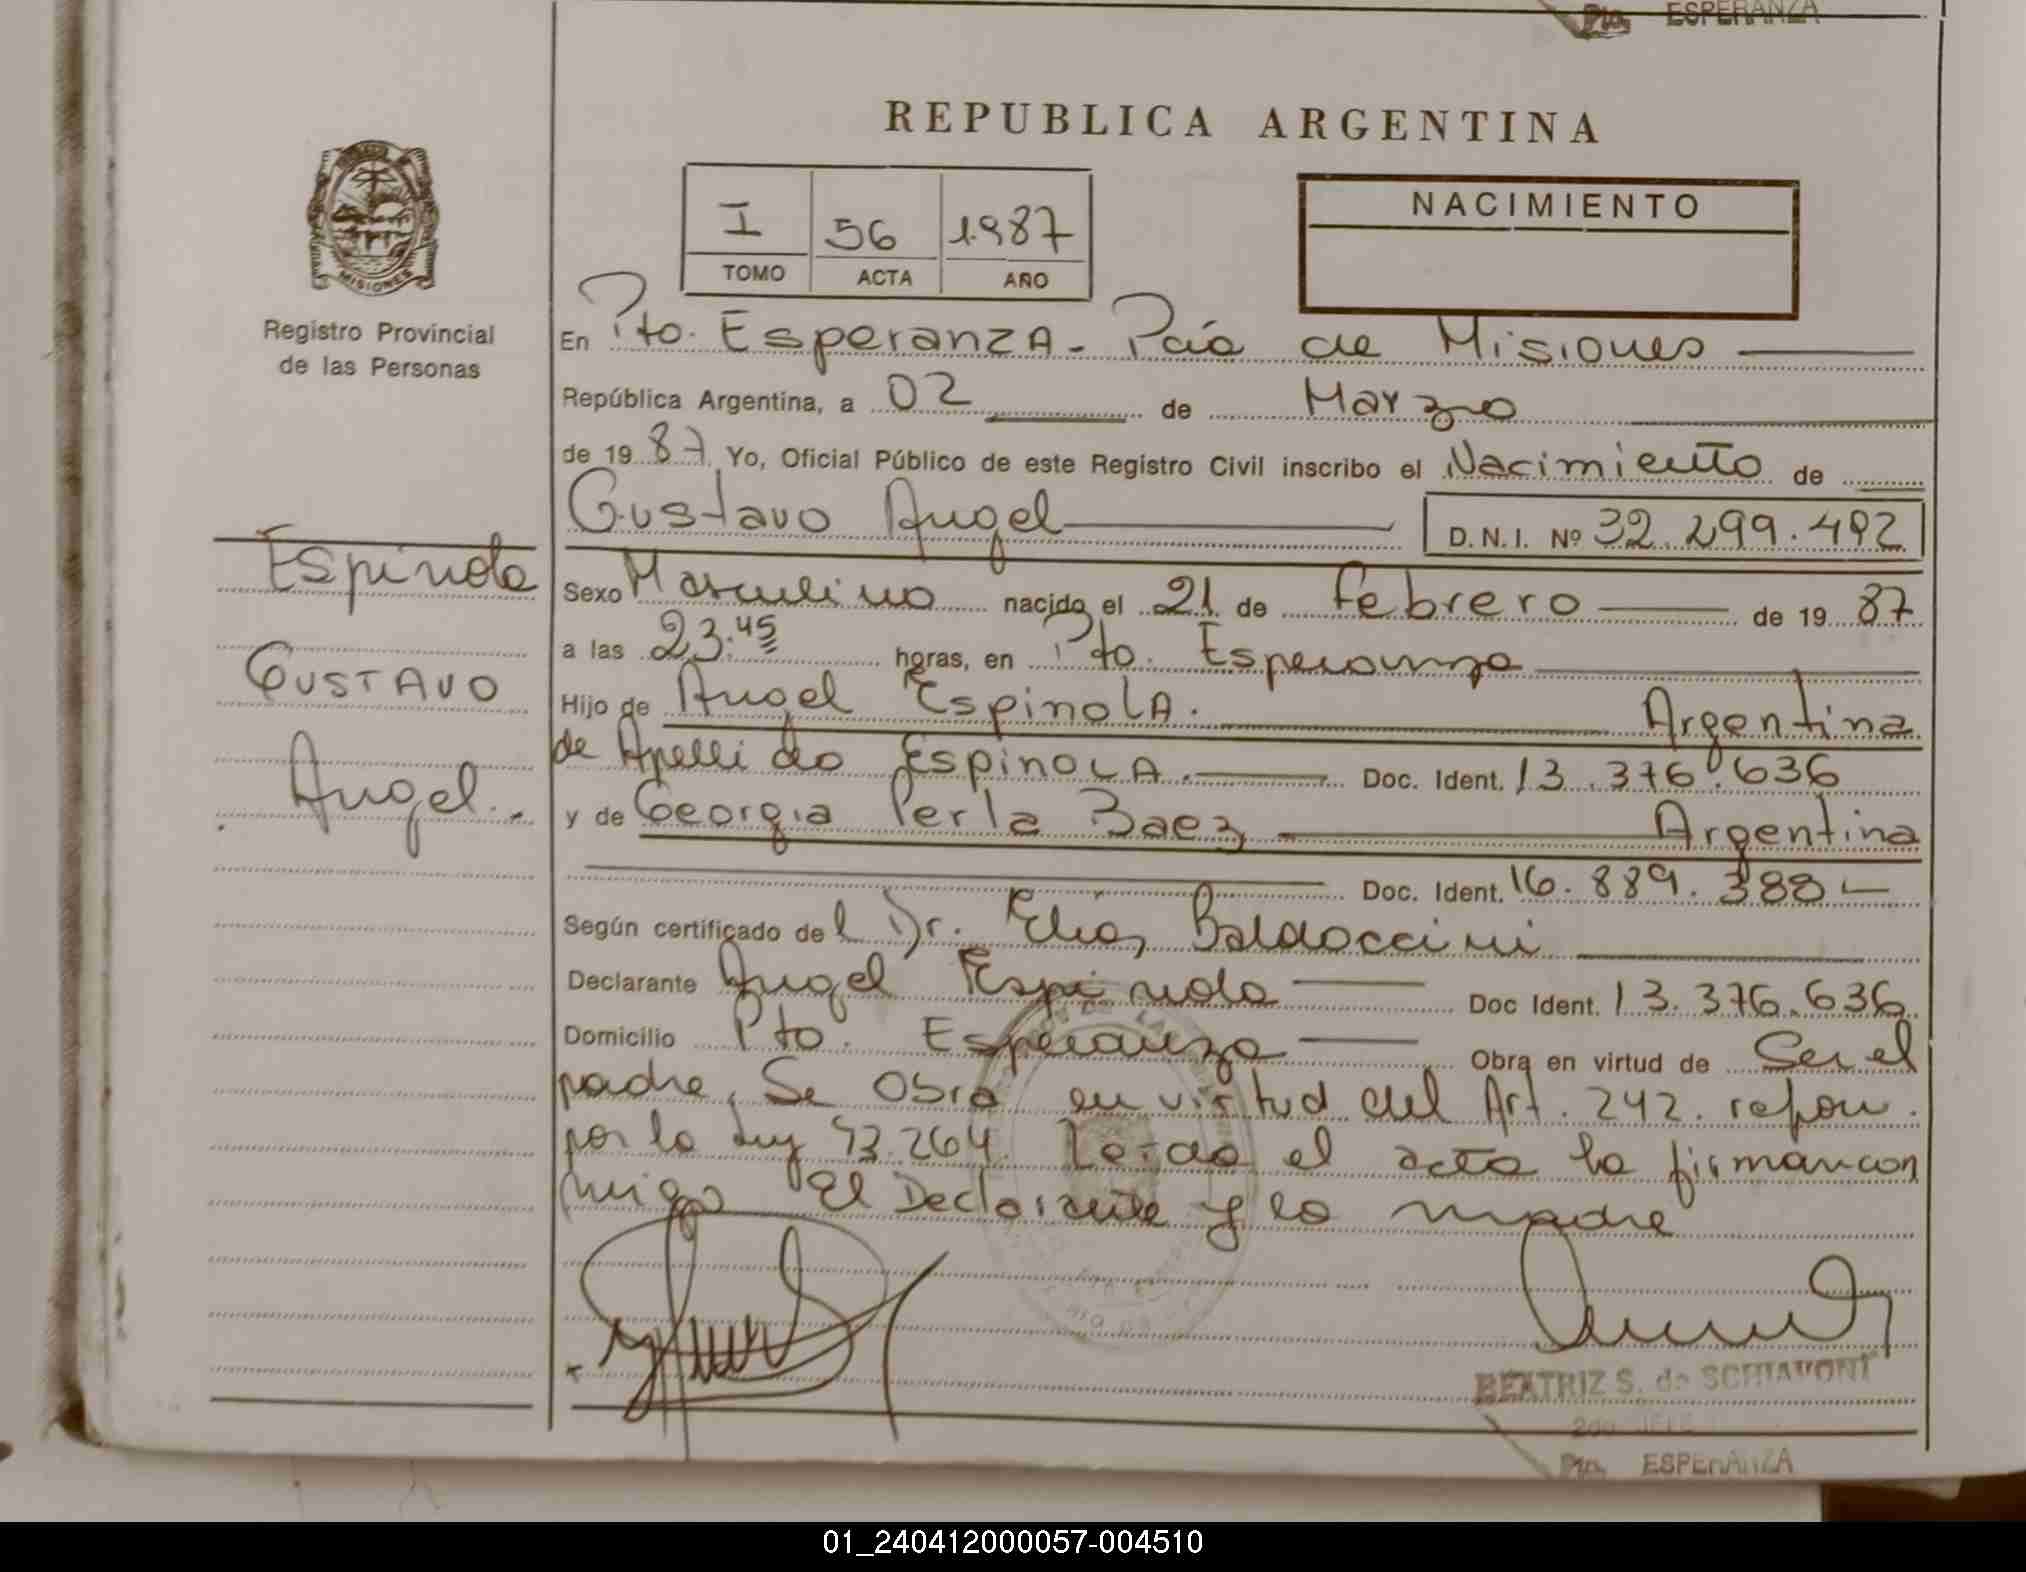 Pto. ESPERANZA
REPUBLICA ARGENTINA
I 56 1987
TOMO ACTA AÑO
NACIMIENTO
MISIONES
Registro Provincial
de las Personas
En Pto. Esperanza - Pcia de Misiones
República Argentina, a 02 de Marzo
de 1987 Yo, Oficial Público de este Registro Civil inscribo el Nacimiento de
Gustavo Angel D.N.I. Nº 32.299.492
Espinola
Gustavo
Angel.-
Sexo Masculino nacido el 21 de Febrero de 19 87
a las 23:45 horas, en Pto. Esperanza
Hijo de Angel Espinola. Argentina
de Apellido Espinola.- Doc. Ident. 13.376.636
y de Georgia Perla Baez Argentina
Doc. Ident. 16.889.388-
Según certificado del Dr. Elias Baldoccini
Declarante Angel Espinola Doc Ident. 13.376.636
Domicilio Pto. Esperanza Obra en virtud de Ser el
padre, Se Obra en virtud del Art. 242.
por la Ley 23.264. Leida el acta la firman con
migo El Declarante y la madre
BEATRIZ S. de SCHIAVONI
2do JEFE
Pto. ESPERANZA
01_240412000057-004510